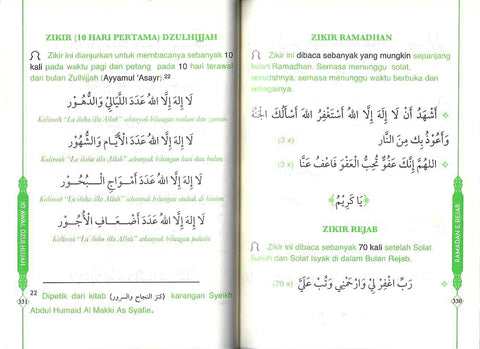 ZIKIR (10 HARI PERTAMA) DZULHIJJAH
Zikir ini dianjurkan untuk membacanya sebanyak 10
kali pada waktu pagi dan petang pada 10 hari terawal
dari bulan Zulhijjah (Ayyamul 'Asayr).²²
لَا إِلٰهَ إِلَّا اللهُ عَدَدَ اللَّيَالِيْ وَالدُّهُوْرِ
Kalimah "La ilaha illa Allah" sebanyak bilangan malam dan zaman
لَا إِلٰهَ إِلَّا اللهُ عَدَدَ الْأَيَّامِ وَالشُّهُوْرِ
Kalimat "La ilaha illa Allah" sebanyak bilangan hari dan bulan
لَا إِلٰهَ إِلَّا اللهُ عَدَدَ أَمْوَاجِ الْبُحُوْرِ
Kalimat "La ilaha illa Allah" sebanyak bilangan
لَا إِلٰهَ إِلَّا اللهُ عَدَدَ أَضْعَافِ الْأُجُوْرِ
Kalimat "La ilaha illa Allah" sebanyak bilangan pahala
²² Dipetik dari kitab (كنز النجاح والسرور) karangan Syeikh
Abdul Humaid Al Makki As Syafie.
10 AWAL DZULHIJJAH
331
ZIKIR RAMADHAN
Zikir ini dibaca sebanyak yang mungkin sepanjang
bulan Ramadhan. Semasa menunggu solat,
sesudahnya, semasa menunggu waktu berbuka dan
sebagainya.
أَشْهَدُ أَنْ لَا إِلٰهَ إِلَّا اللهُ أَسْتَغْفِرُ اللهَ أَسْأَلُكَ الْجَنَّةَ
وَأَعُوْذُ بِكَ مِنَ النَّارِ (3 x)
اللهُمَّ إِنَّكَ عَفُوٌّ تُحِبُّ الْعَفْوَ فَاعْفُ عَنَّا (3 x)
﴿يَا كَرِيْمُ﴾
ZIKIR REJAB
Zikir ini dibaca sebanyak 70 kali setelah Solat
Subuh dan Solat Isyak di dalam Bulan Rejab.
رَبِّ اغْفِرْ لِيْ وَارْحَمْنِيْ وَتُبْ عَلَيَّ (70 x)
RAMADAN & REJAB
330